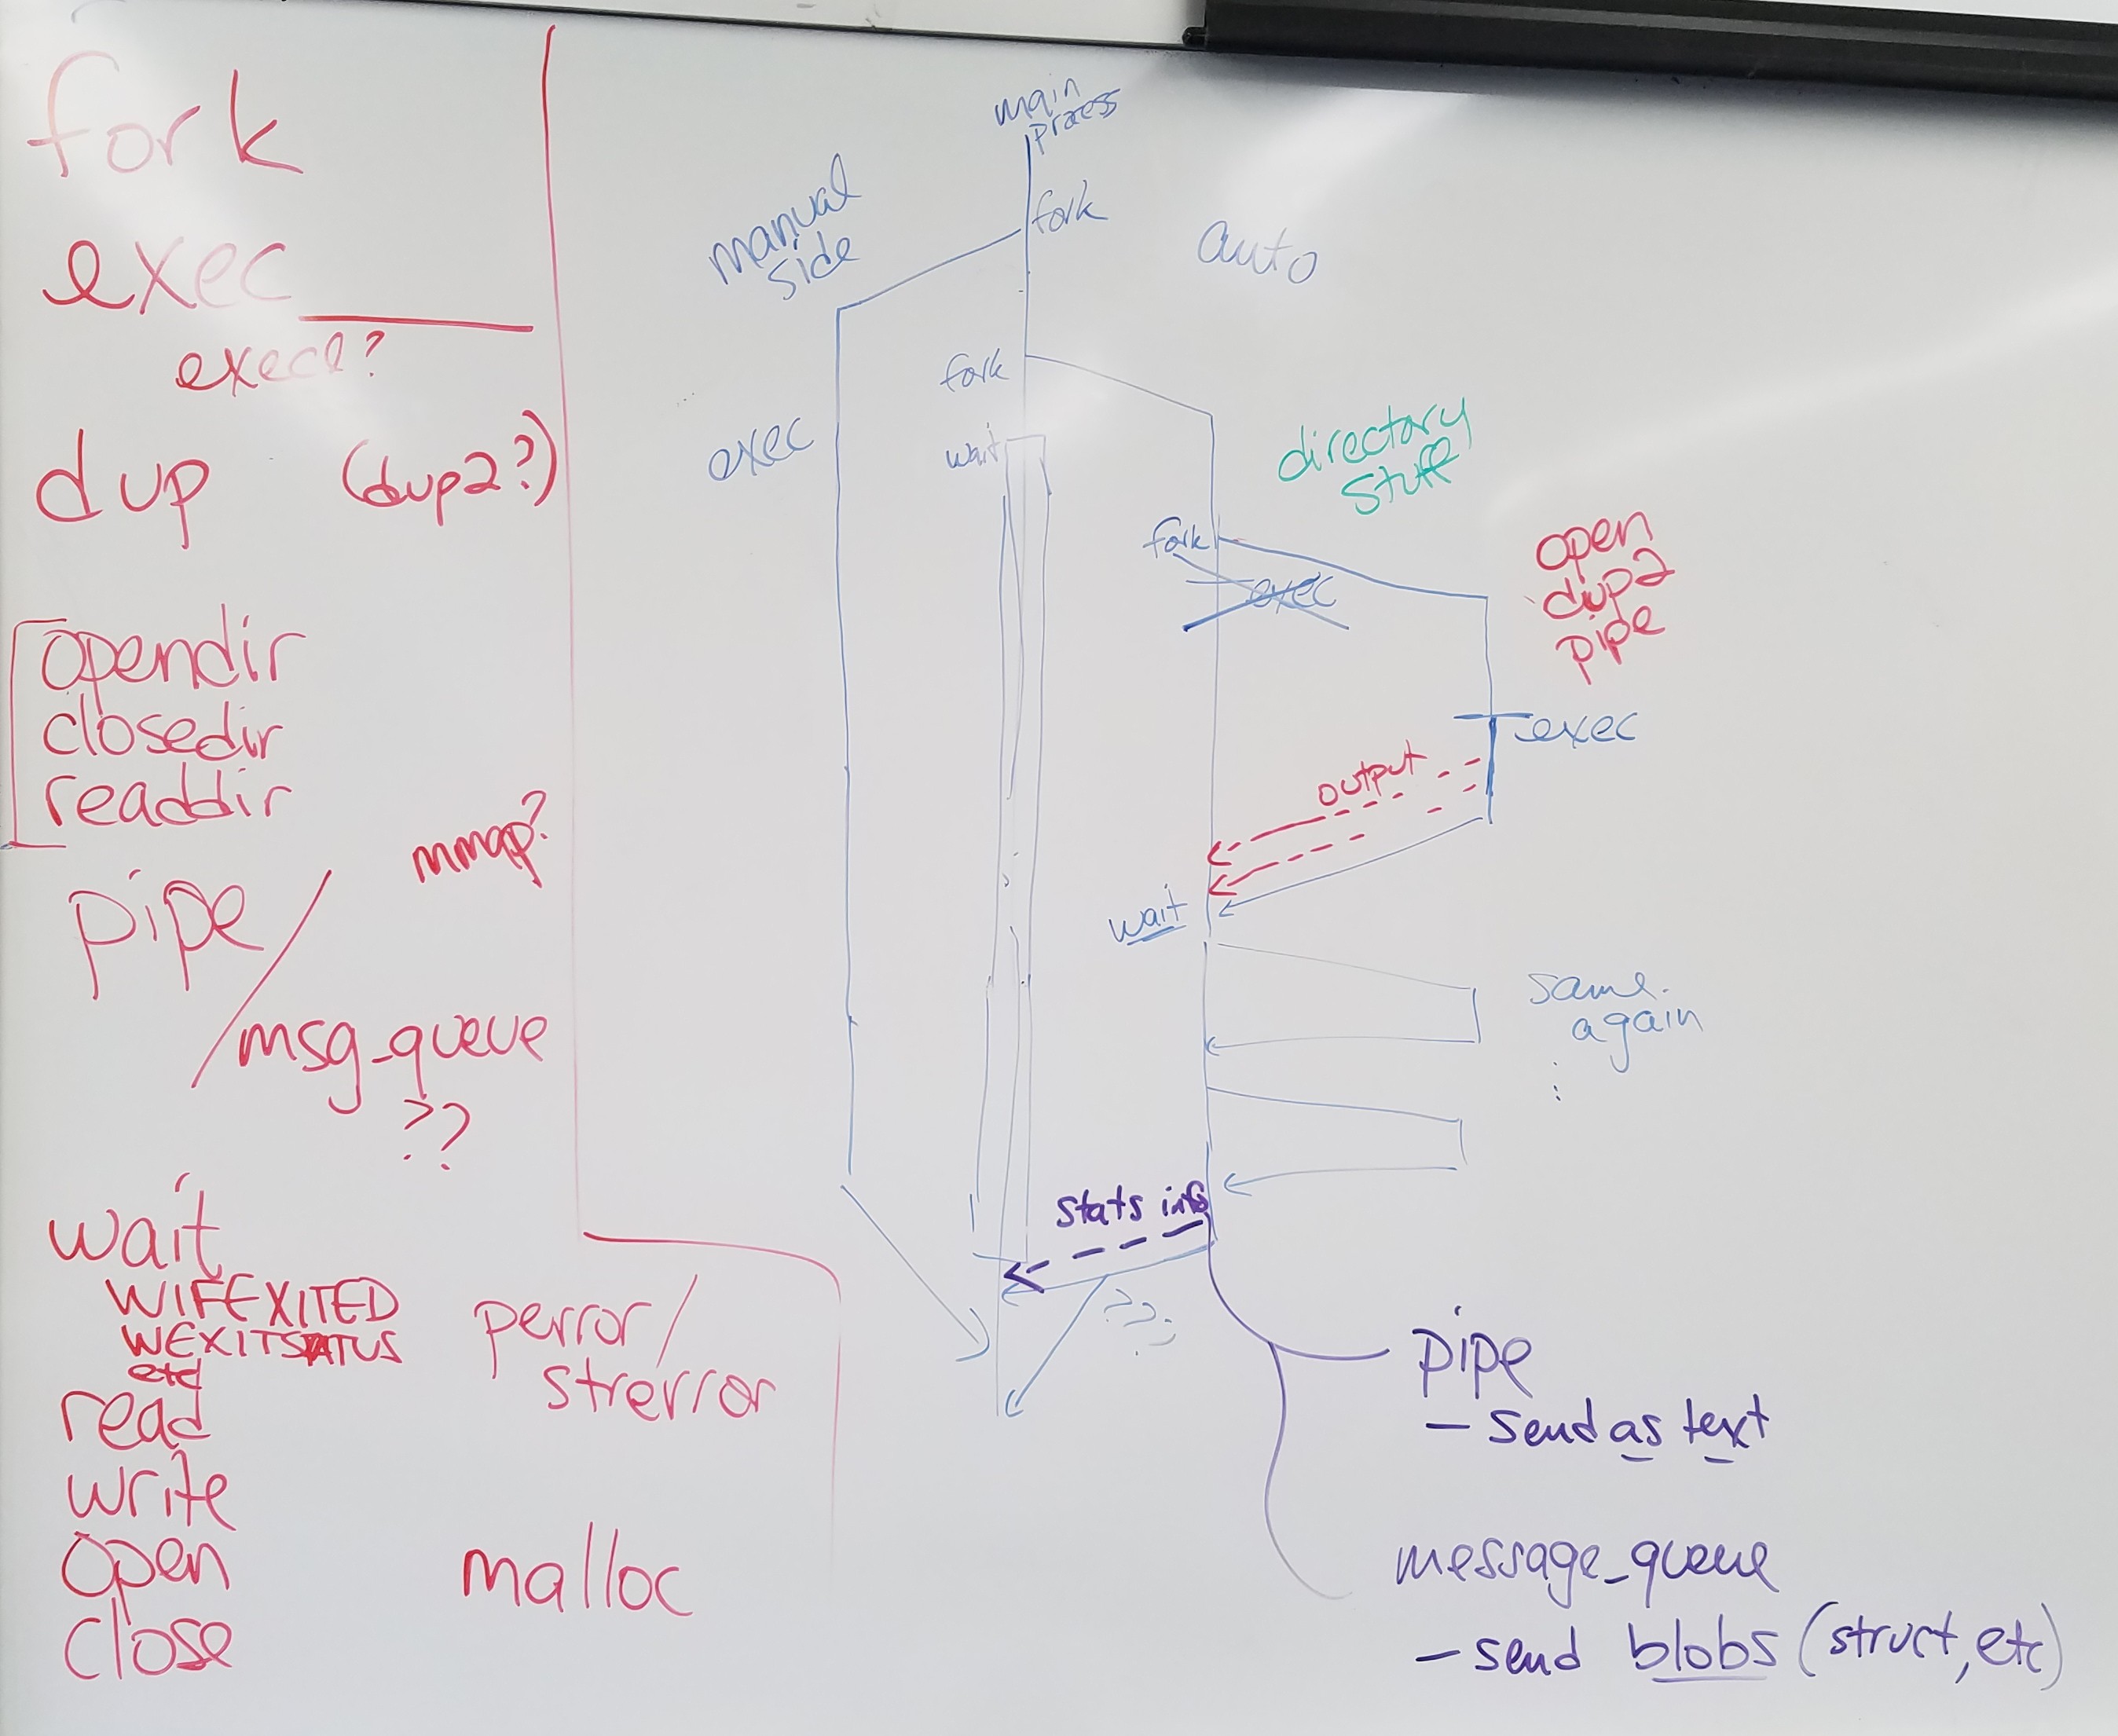 fork
exec____
execl?
dup (dup2?)
opendir
closedir
readdir
mmap?
pipe/
msg_queue
??
wait
WIFEXITED
WEXITSTATUS
etc
read
write
open
close
perror/
strerror
malloc
main
process
fork
manual
side
auto
fork
exec
wait
directory
stuff
fork
exec
open
dup2
pipe
exec
output
wait
same
again
⋮
stats info
???
pipe
- send as text
message_queue
- send blobs (struct, etc)